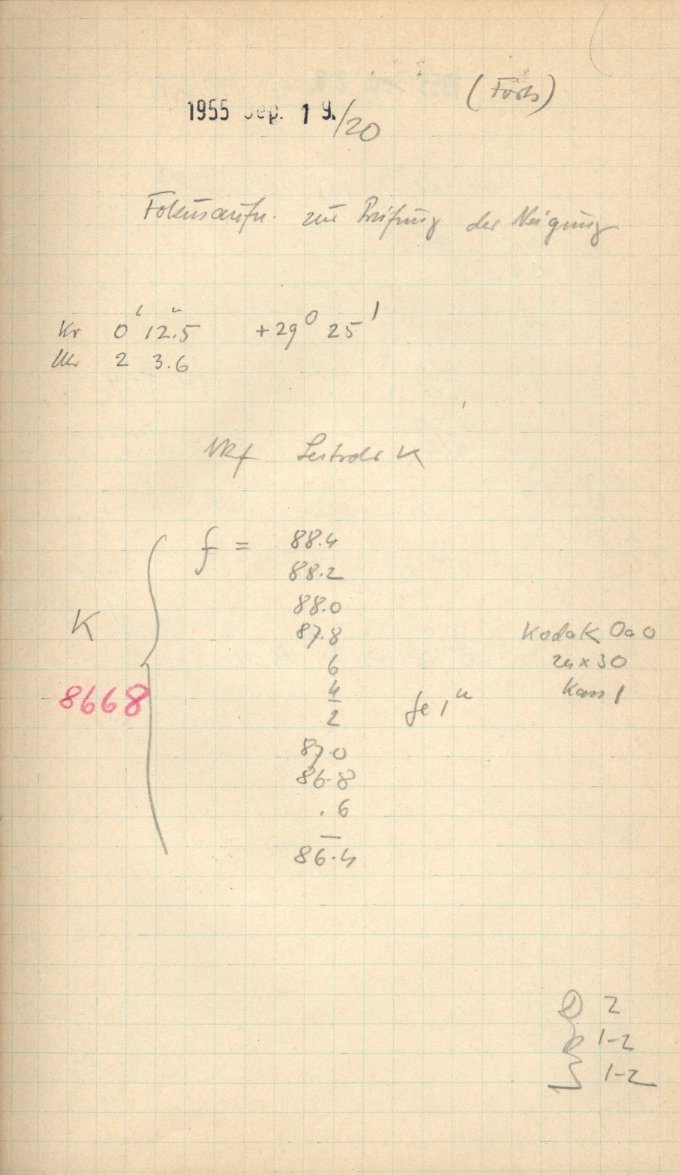 (Forts)
1955 Sep. 19./20
Fokusaufn. zur Prüfung der Neigung
Kr 0ʰ 12.5ᵐ +29° 25'
Ukr 2 3.6
f = 88.4
88.2
88.0
K 87.8 Kodak OaO
6 24 x 30
8668 4 Kass 1
2 je 1ᵐ
87.0
86.8
.6
86.4
D 2
R 1-2
S 1-2